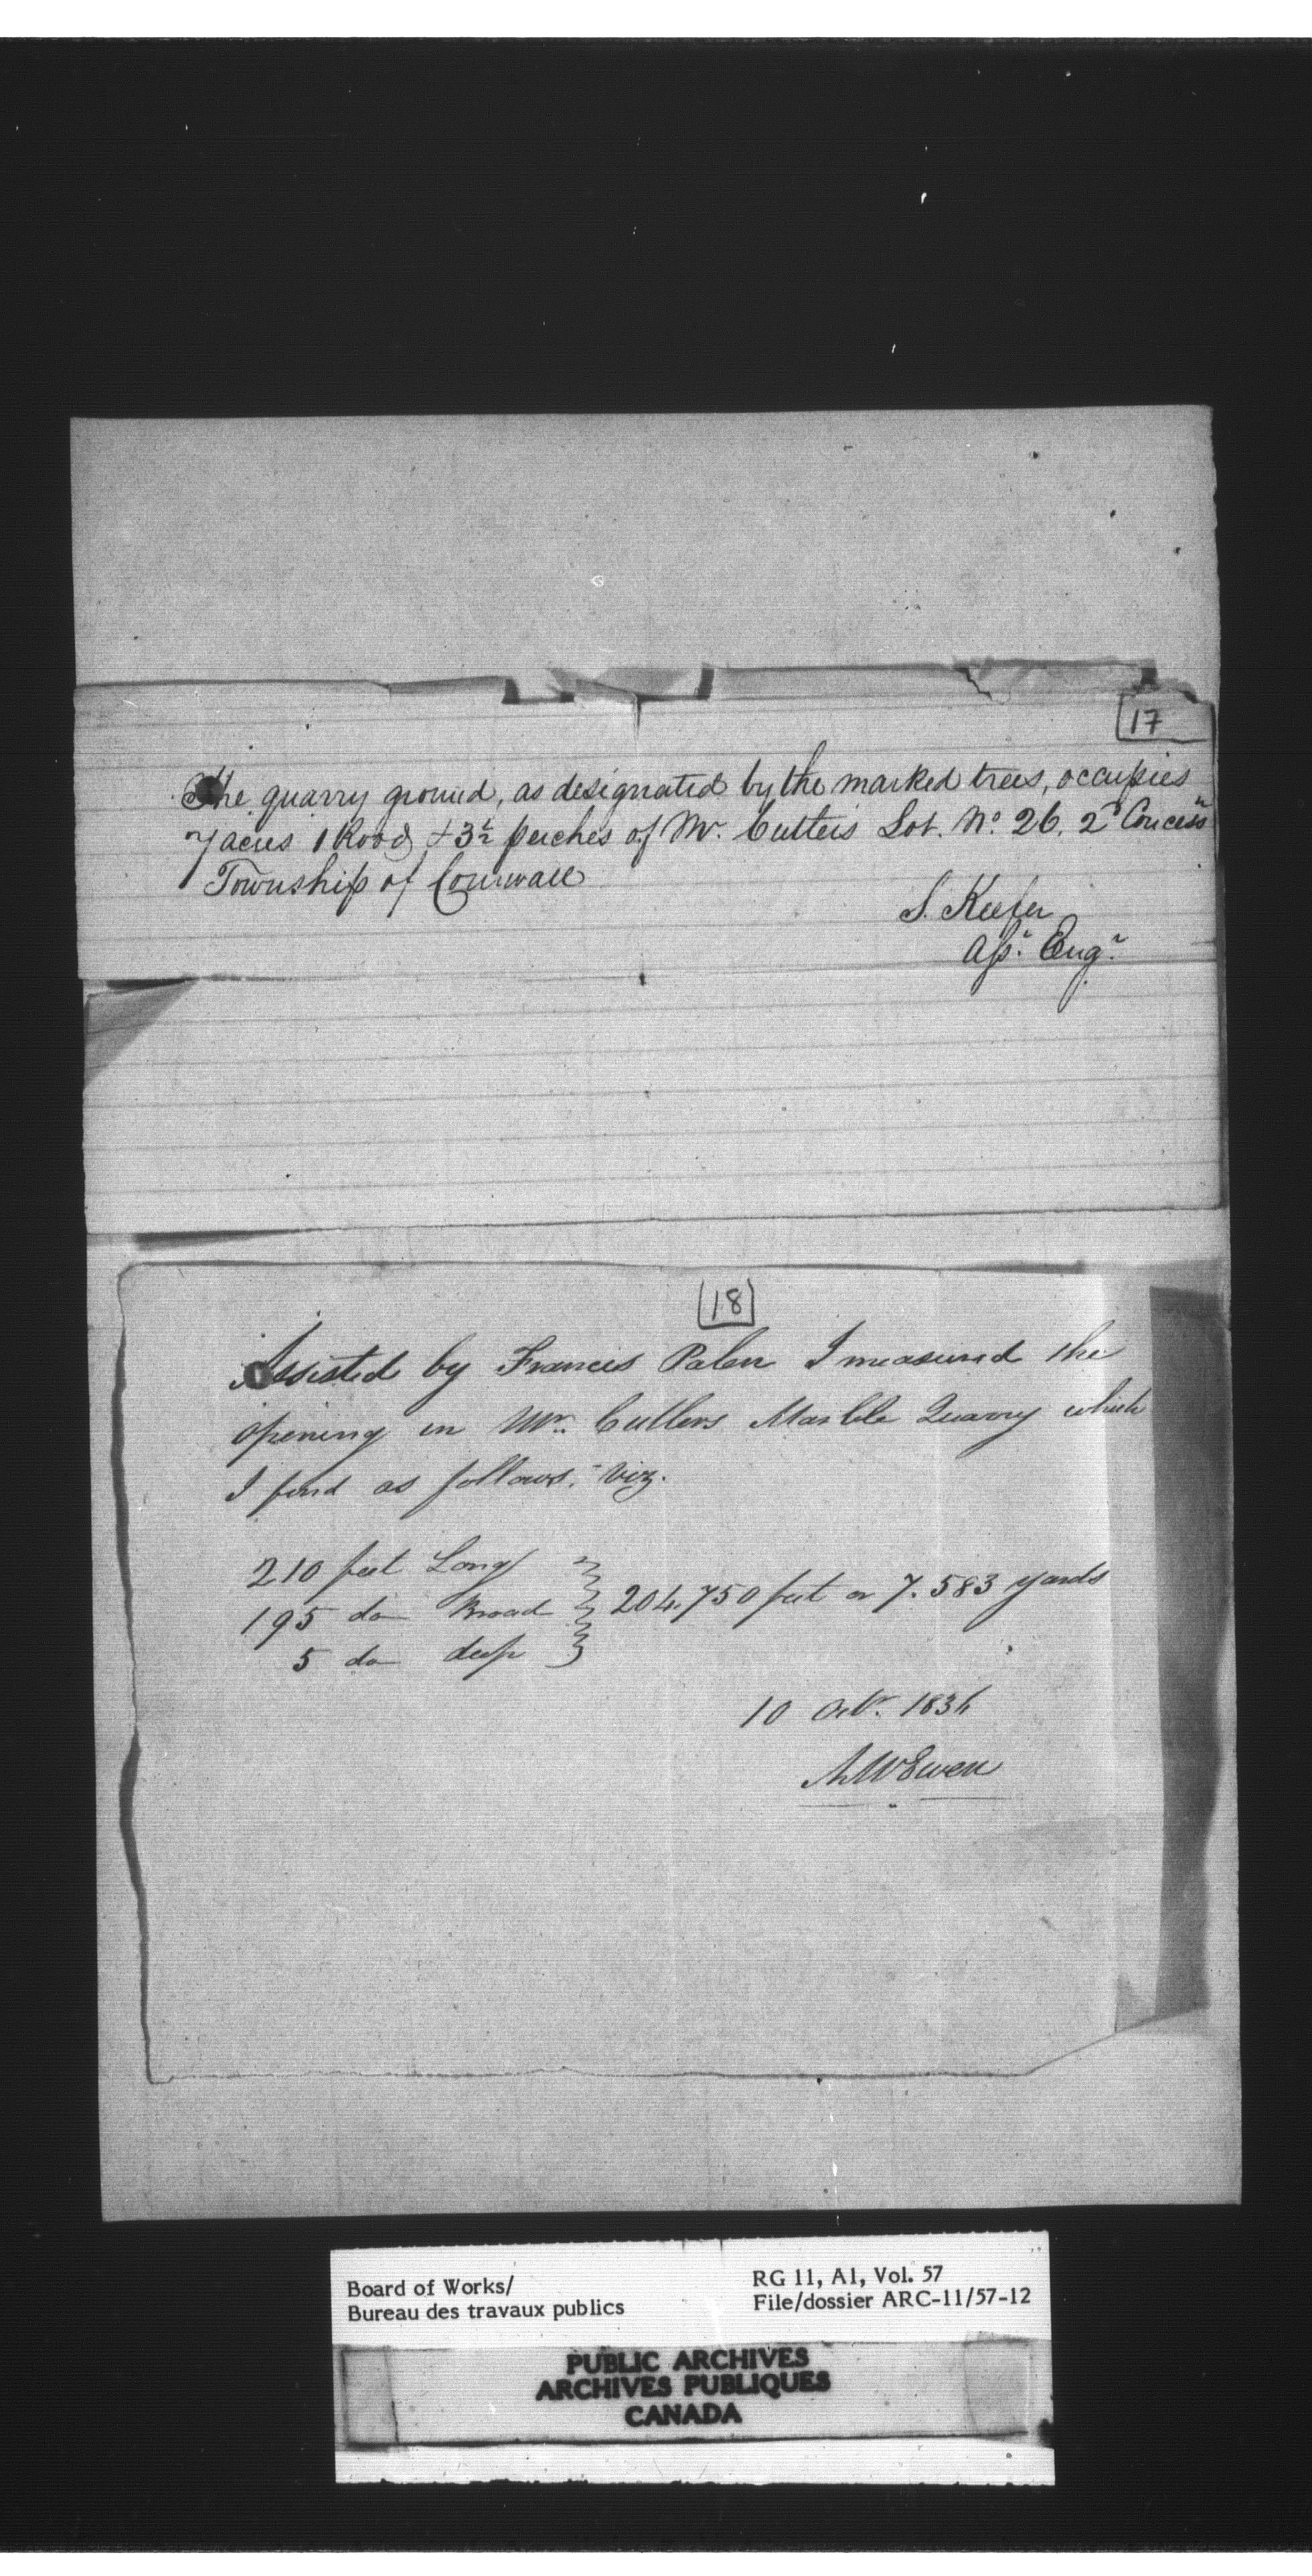 17
The quarry ground, as designated by the marked trees, occupies
7 acres 1 Rood + 3½ perches of Mr. Cutlers Lot. No. 26. 2d Concessn
Township of Cornwall
S. Keefer
Assr. Engr.
18
Assisted by Francis Palen I measured the
opening in Mr. Cutlers Marble Quarry which
I find as follows. Viz.
210 feet Long
195 do Broad } 204.750 feet or 7.583 yards
5 do deep
10 Octr. 1836
A. McEwen
Board of Works/
Bureau des travaux publics
RG 11, A1, Vol. 57
File/dossier ARC-11/57-12
PUBLIC ARCHIVES
ARCHIVES PUBLIQUES
CANADA